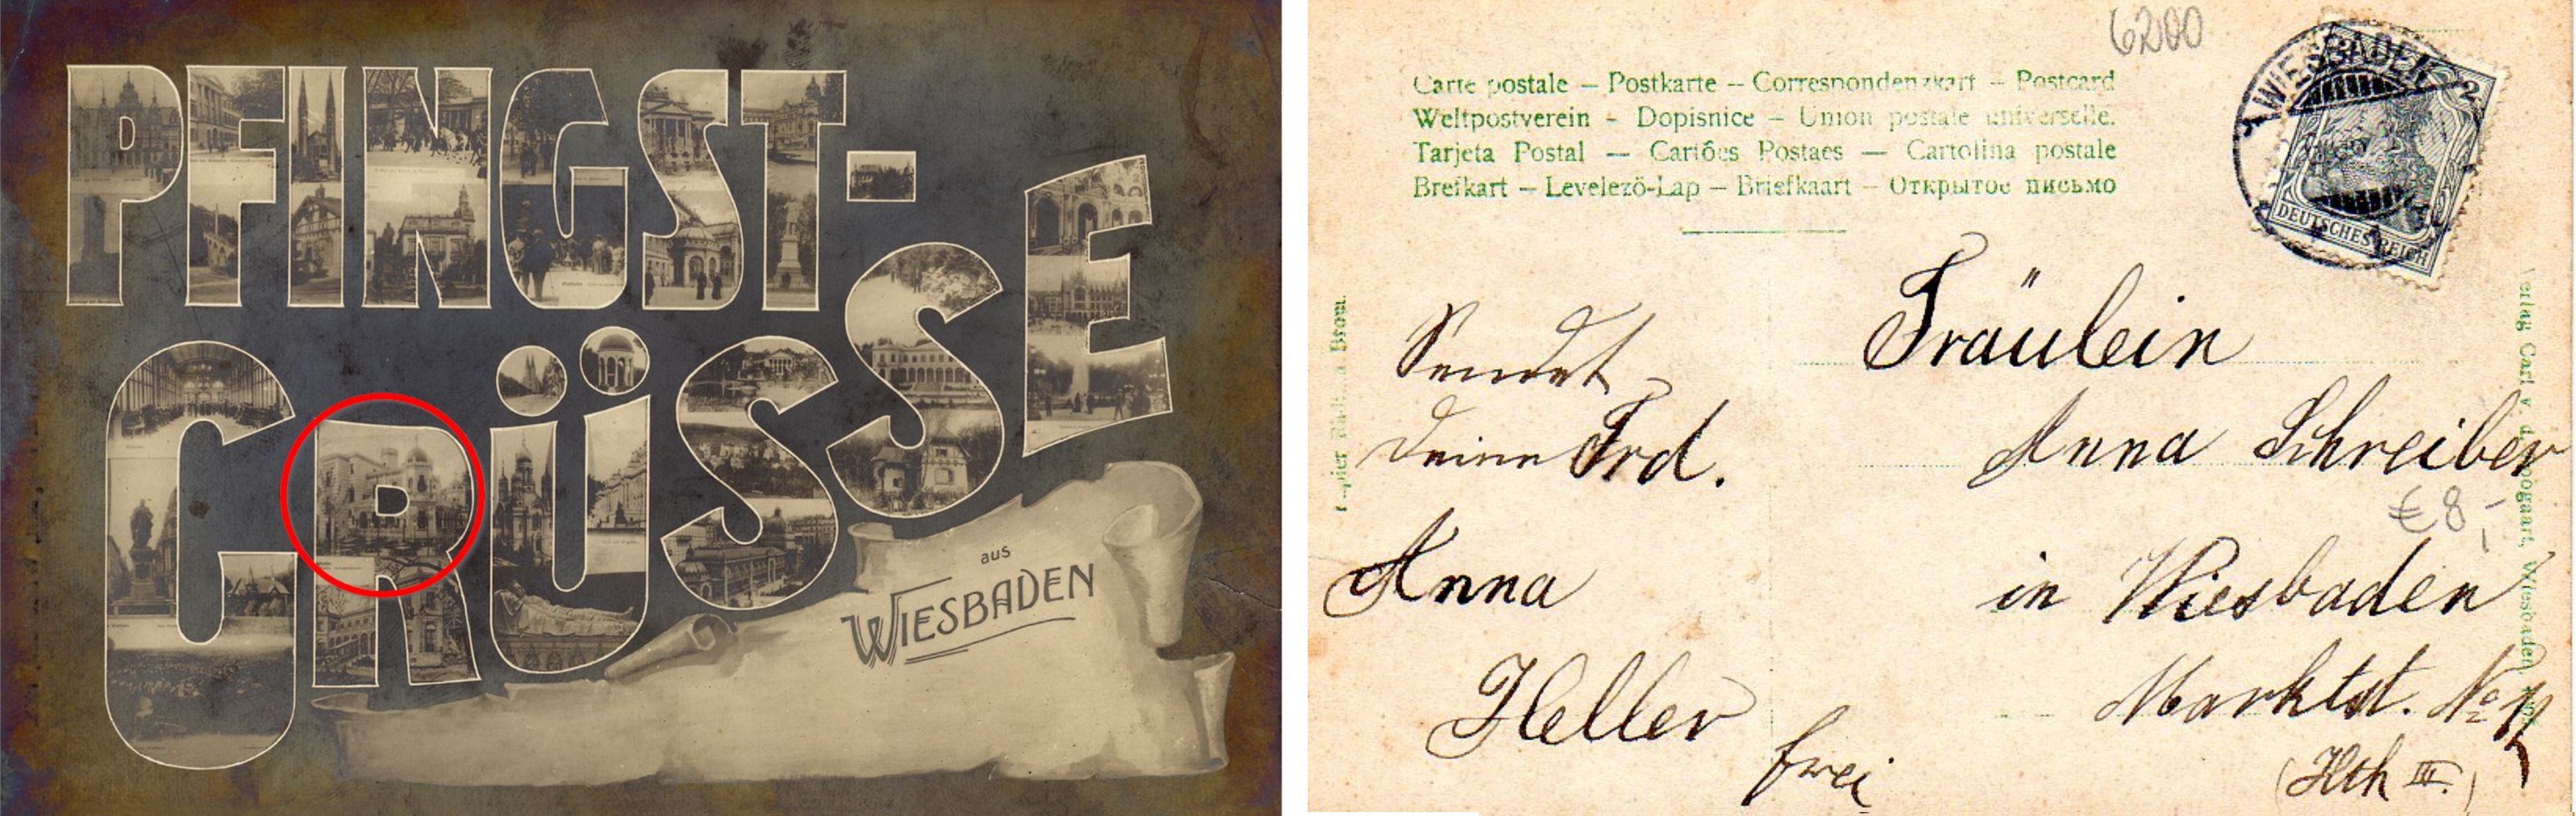 PFINGST-
GRÜSSE
aus
WIESBADEN
6200
Carte postale – Postkarte – Correspondenzkart – Postcard
Weltpostverein – Dopisnice – Union postale universelle.
Tarjeta Postal — Cartões Postaes — Cartolina postale
Brefkart – Levelező-Lap – Briefkaart – Открытое письмо
WIESBADEN
2
DEUTSCHES REICH
Sendet
Deine Frd.
Anna
Heller
Fräulein
Anna Schreiber
€8,-
in Wiesbaden
Marktst. No
frei
(Hth III.)
Verlag Carl v. d. Boogaart, Wiesbaden